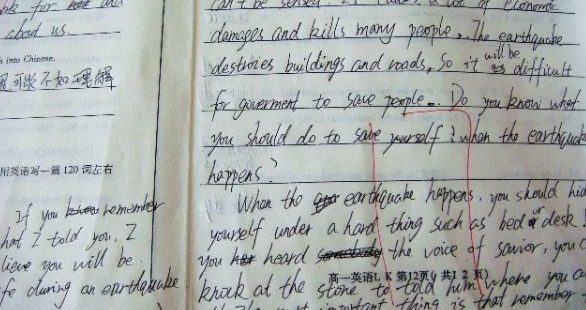 about us.
into Chinese.
用英语写一篇 120 词左右
If you remember
hat I told you, I
lieve you will be
fe during an earthquake
can't be sensed. It a lot of economic
damages and kills many people. The earthquake
destroies buildings and roads, so it will be difficult
for goverment to save people. Do you know what
you should do to save yourself? when the earthquake
happens?
When the earthquake happens, you should hid
yourself under a hard thing such as bed or desk.
you heard the voice of savior, you
高一英语L K 第12页(共12页)
knock at the stone to told him where you a
important thing is that remember